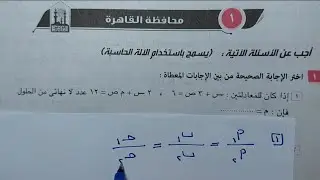 ١
محافظة القاهرة
أجب عن الأسئلة الآتية : (يسمح باستخدام الآلة الحاسبة)
١ اختر الإجابة الصحيحة من بين الإجابات المعطاة :
١ إذا كان للمعادلتين : س + ٣ ص = ٦ ، ٢ س + م ص = ١٢ عدد لا نهائى من الحلول
فإن : م =
١ م١/م٢ = ب١/ب٢ = حـ١/حـ٢